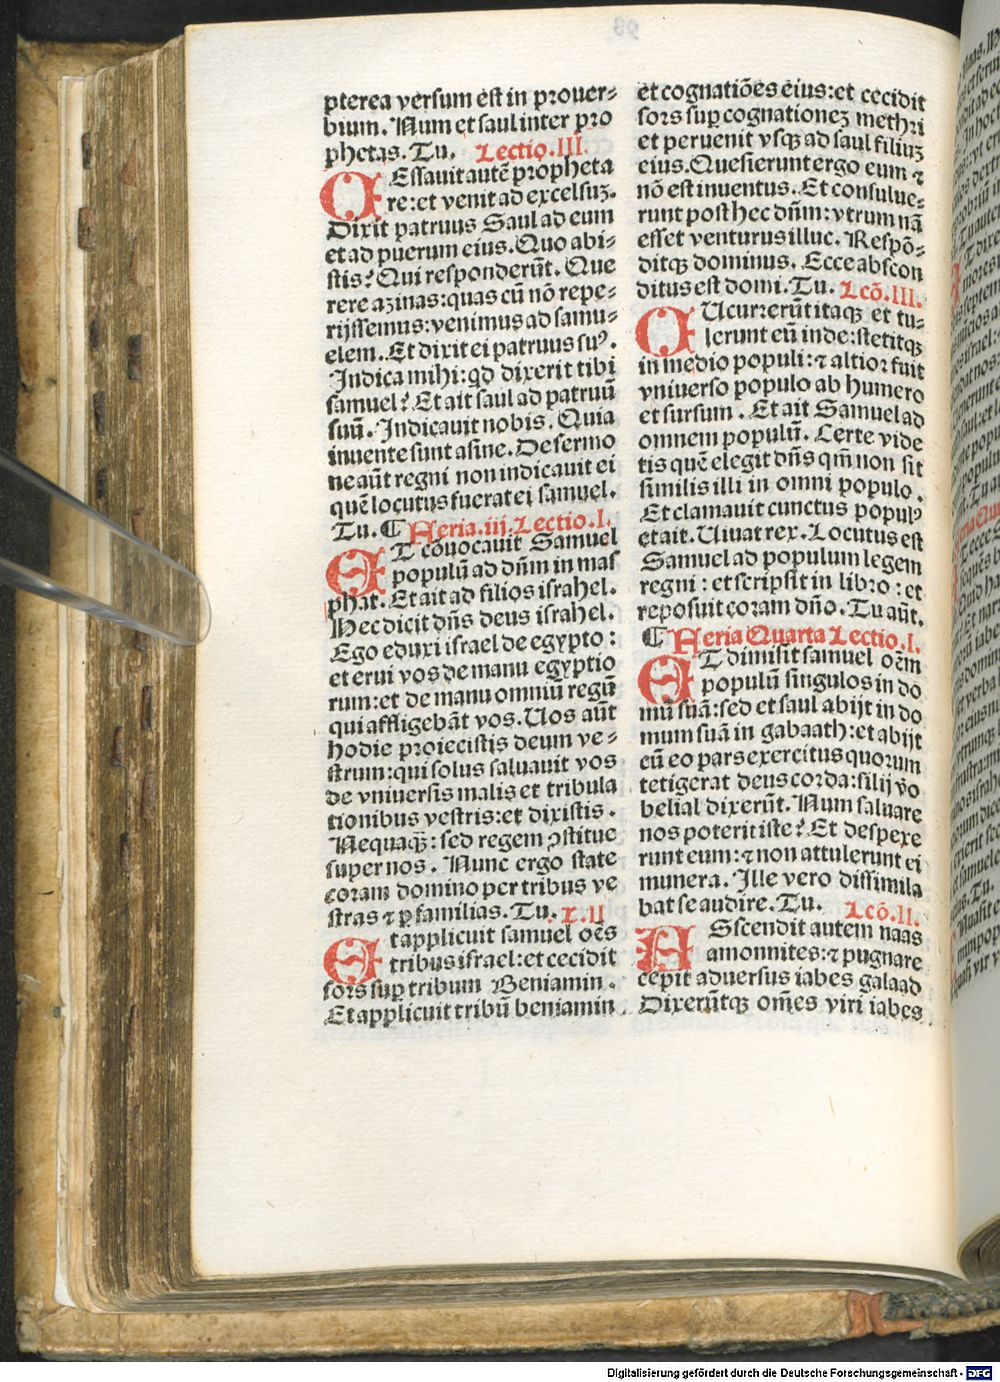 pterea versum est in prouer⸗
bium. Num et saul inter pro
phetas. Tu. Lectio.III.
CEssauit autē propheta
re: et venit ad excelsuꝫ.
Dixit patruus Saul ad eum
et ad puerum eius. Quo abi⸗
stis? Qui responderūt. Que
rere azinas: quas cū nō repe⸗
rijssemus: venimus ad samu⸗
elem. Et dixit ei patruus suꝰ.
Indica mihi: qd dixerit tibi
samuel? Et ait saul ad patruū
suū. Indicauit nobis. Quia
inuente sunt asine. De sermo
ne aūt regni non indicauit ei
quē locutus fuerat ei samuel.
Tu. ¶ Feria.iij. Lectio.I.
ET cōuocauit Samuel
populū ad dn̄m in mas
phat. Et ait ad filios israhel.
Hec dicit dn̄s deus israhel.
Ego eduxi israel de egypto:
et erui vos de manu egyptio
rum: et de manu omniū regū
qui affligebāt vos. Uos aūt
hodie proiecistis deum ve⸗
strum: qui solus saluauit vos
de vniuersis malis et tribula
tionibus vestris: et dixistis.
Nequaqȝ̄: sed regem ꝯstitue
super nos. Nunc ergo state
coram domino per tribus ve
stras ⁊ ꝑ familias. Tu. L.II
Et applicuit samuel oēs
tribus israel: et cecidit
sors suꝑ tribum Beniamin.
Et applicuit tribū beniamin
et cognatiōes eius: et cecidit
sors suꝑ cognationeꝫ methri
et peruenit vsqꝫ ad saul filiuꝫ
eius. Quesierunt ergo eum ⁊
nō est inuentus. Et consulue⸗
runt post hec dn̄m: vtrum nā
esset venturus illuc. Respō⸗
ditqꝫ dominus. Ecce abscon
ditus est domi. Tu. Lcō.III.
CUcurrerūt itaqꝫ et tu⸗
lerunt eū inde: stetitqꝫ
in medio populi: ⁊ altior fuit
vniuerso populo ab humero
et sursum. Et ait Samuel ad
omnem populū. Certe vide
tis quē elegit dn̄s qm̄ non sit
similis illi in omni populo.
Et clamauit cunctus populꝰ
et ait. Uiuat rex. Locutus est
Samuel ad populum legem
regni: et scripsit in libro: et
reposuit coram dn̄o. Tu aūt.
¶ Feria Quarta Lectio.I.
ET dimisit samuel oēm
populū singulos in do
mū suā: sed et saul abijt in do
mum suā in gabaath: et abijt
cū eo pars exercitus quorum
tetigerat deus corda: filij v̄o
belial dixerūt. Num saluare
nos poterit iste? Et despexe
runt eum: ⁊ non attulerunt ei
munera. Ille vero dissimila
bat se audire. Tu. Lcō.II.
AScendit autem naas
amonnites: ⁊ pugnare
cepit aduersus iabes galaad
Dixerūtqꝫ om̄es viri iabes
Digitalisierung gefördert durch die Deutsche Forschungsgemeinschaft - DFG